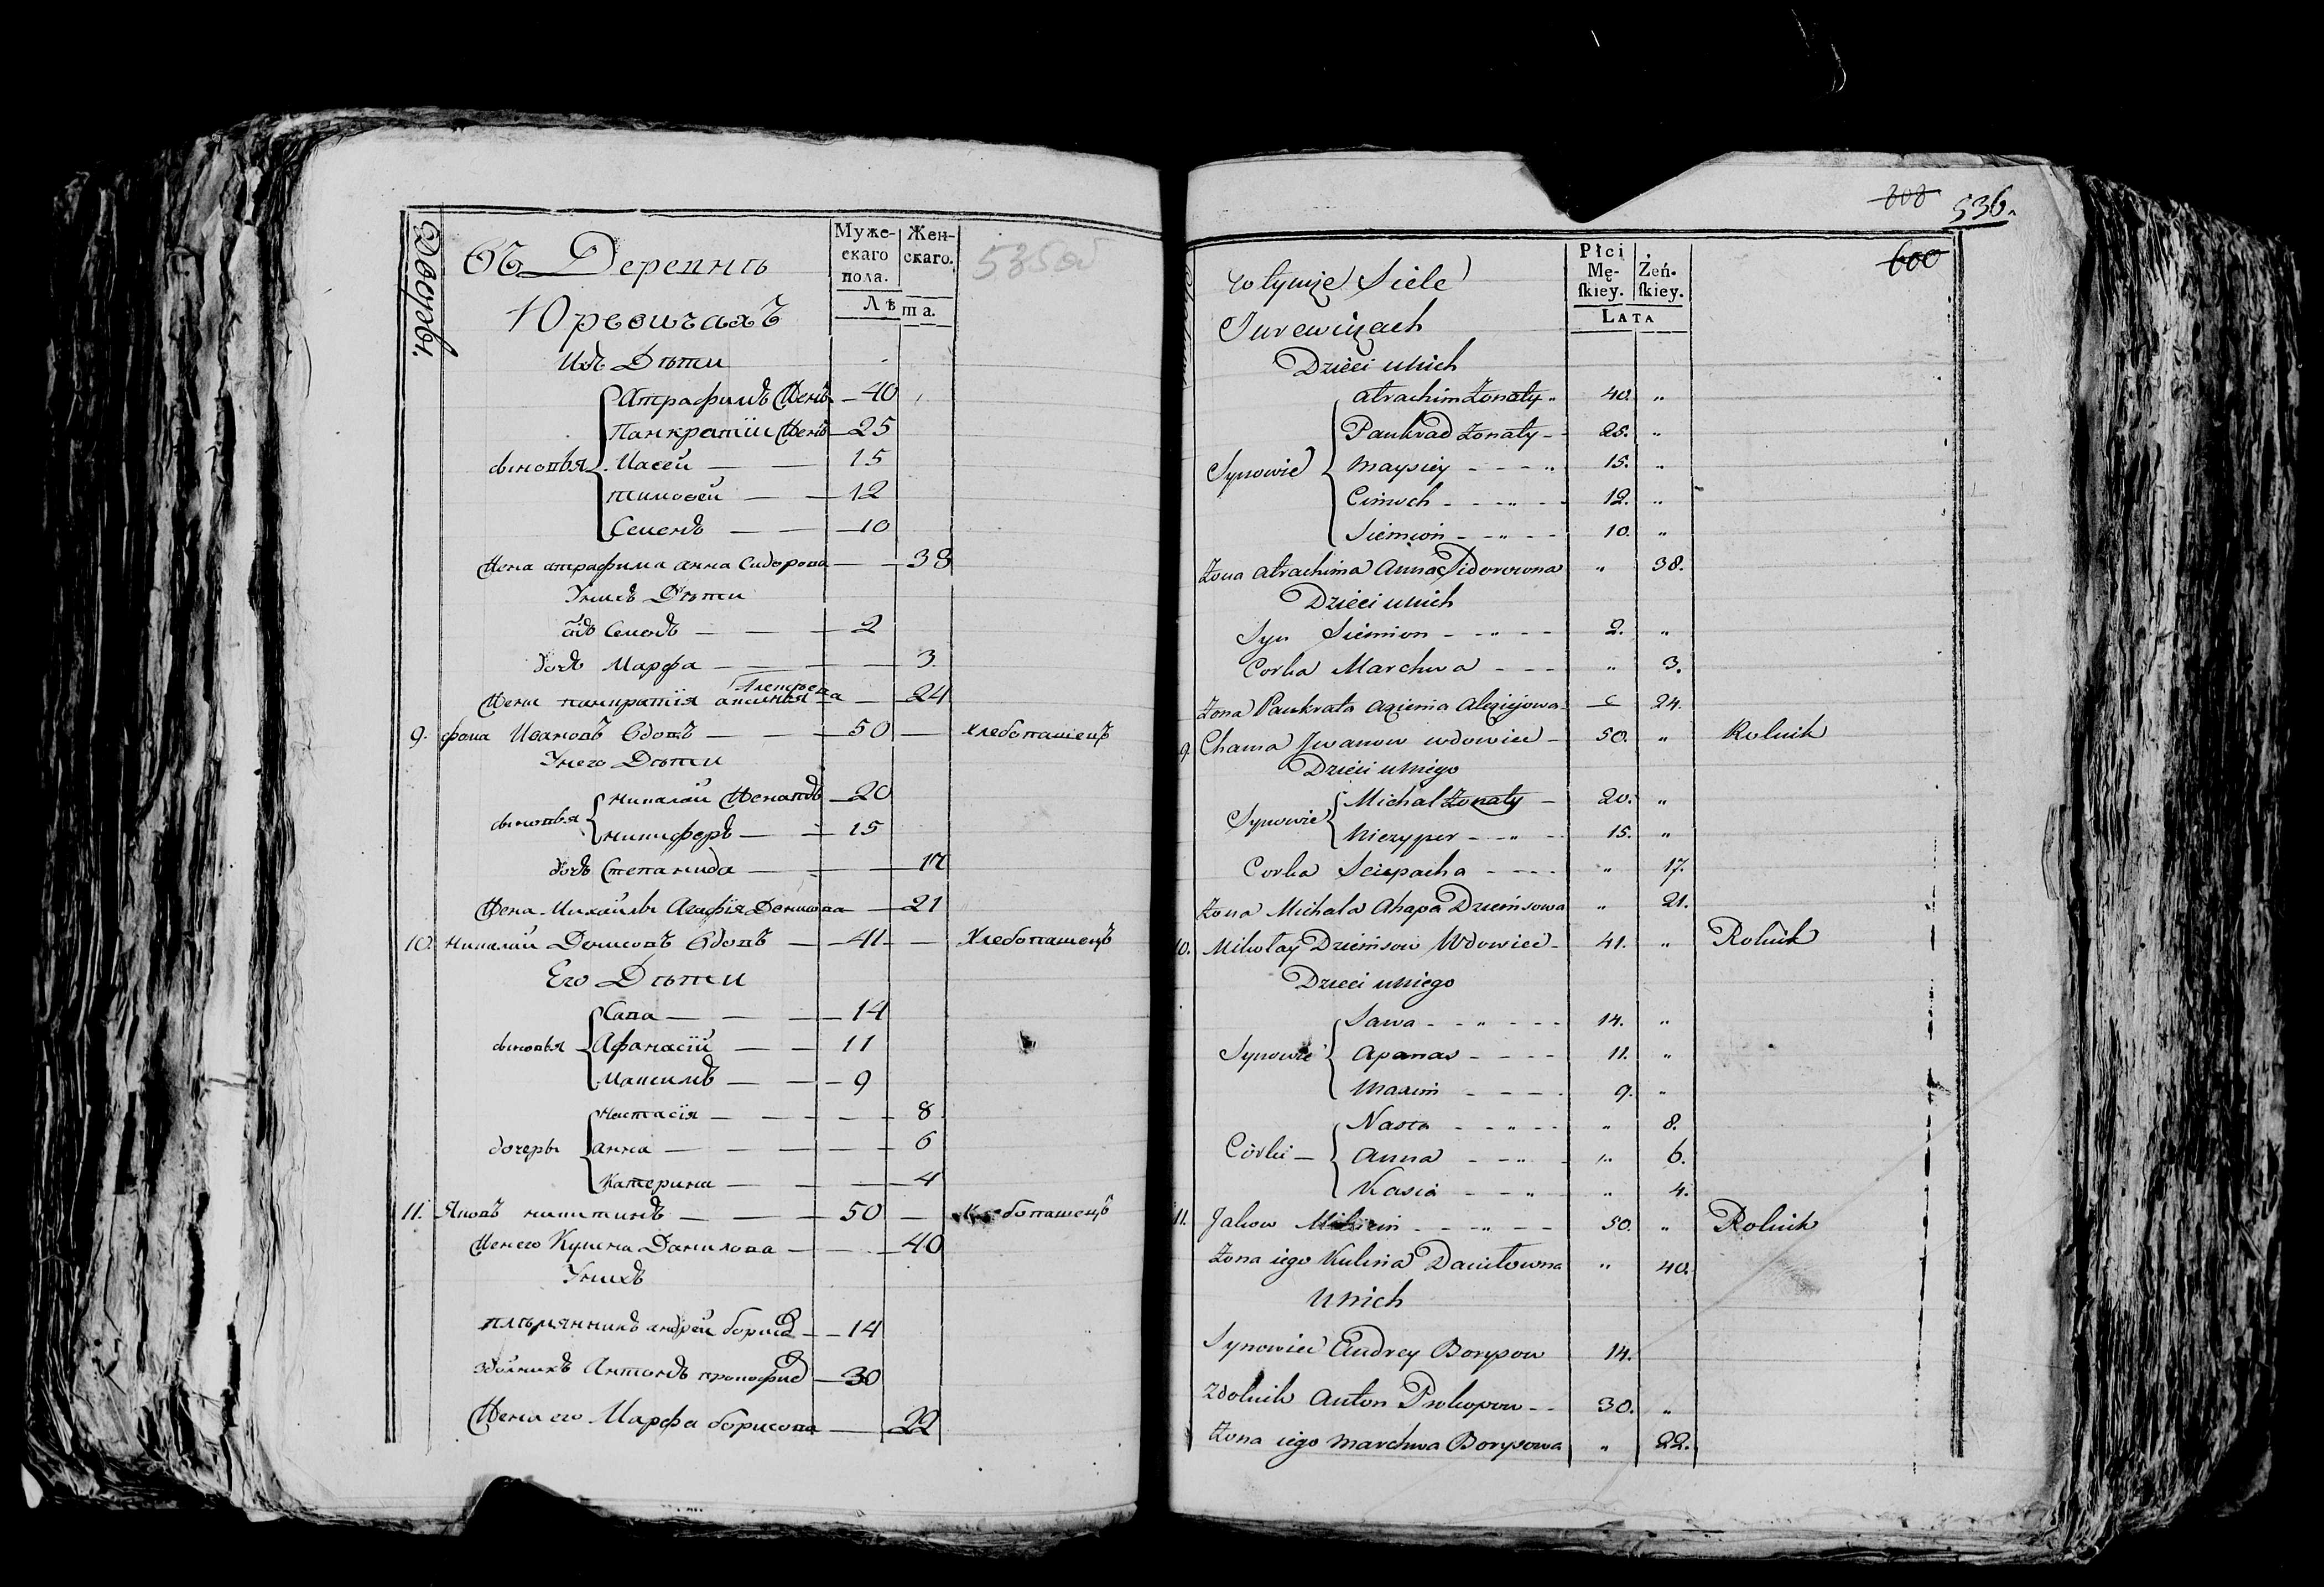 Дворы.
Въ Деревнѣ
Юревичахъ
Муже-
скаго
пола.
Жен-
скаго.
Лѣта.
535об
Ихъ Дѣти
сыновья
Атрафимъ Жен. 40
Панкратiи Жен. 25
Масей 15
тимовей 12
Семенъ 10
Жена атрафима анна Сидорова 38
У нихъ Дѣти
Семенъ 2
дочь Марфа 3
Жена панкратiя аксинья Алексѣева 24
9. фома Ивановъ Вдовъ 50 хлебопашецъ
У него Дѣти
сыновья
Женатъ 20
никиферъ 15
дочь Степанида 17
Жена Михайлы Агафiя Денисова 21
10. николай Денисовъ Вдовъ 41 Хлебопашецъ
Его Дѣти
сыновья
Сава 14
Афанасiй 11
Максимъ 9
дочеры
Настасiя 8
анна 6
Катерина 4
11. Яковъ никитинъ 50 хлебопашецъ
Жена его Кулина Данилова 40
У нихъ
племянникъ андрей борисо 14
здольникъ Антонъ прокофьев 30
Жена его Марфа борисова 22
808
536.
600
w tymże Siele
Jurewiczach
Płci
Mę-
skiey.
Żeń-
skiey.
LATA
Dzieci u nich
Synowie
Atrachim żonaty 40. "
Pankrad żonaty 25. "
Maysiey 15. "
Cimoch 12. "
Siemion 10. "
Żona Atrachima Anna Sidorowna " 38.
Dzieci u nich
Syn Siemion 2. "
Corka Marchwa " 3.
Żona Pankrata Axienia Alexiejowa 24.
9. Chama Jwanow wdowiec 50. " Rolnik
Dzieci u niego
Synowie
Michal żonaty 20. "
Nieczyper 15. "
Corka Sciepacha " 17.
Żona Michała Ahapa Dziemisowa " 21.
10. Mikołay Dziemisow Wdowiec 41. " Rolnik
Dzieci u niego
Synowie
Sawa 14. "
Apanas 11. "
Maxim 9. "
Córki
Nasta " 8.
Anna " 6.
Kasia " 4.
11. Jakow Mikicin 50. " Rolnik
Żona iego Kulina Daniłowna " 40.
U nich
Synowiec Andrey Borysow 14.
Zdolnik Anton Prokopow 30. "
Żona iego Marchwa Borysowa " 22.